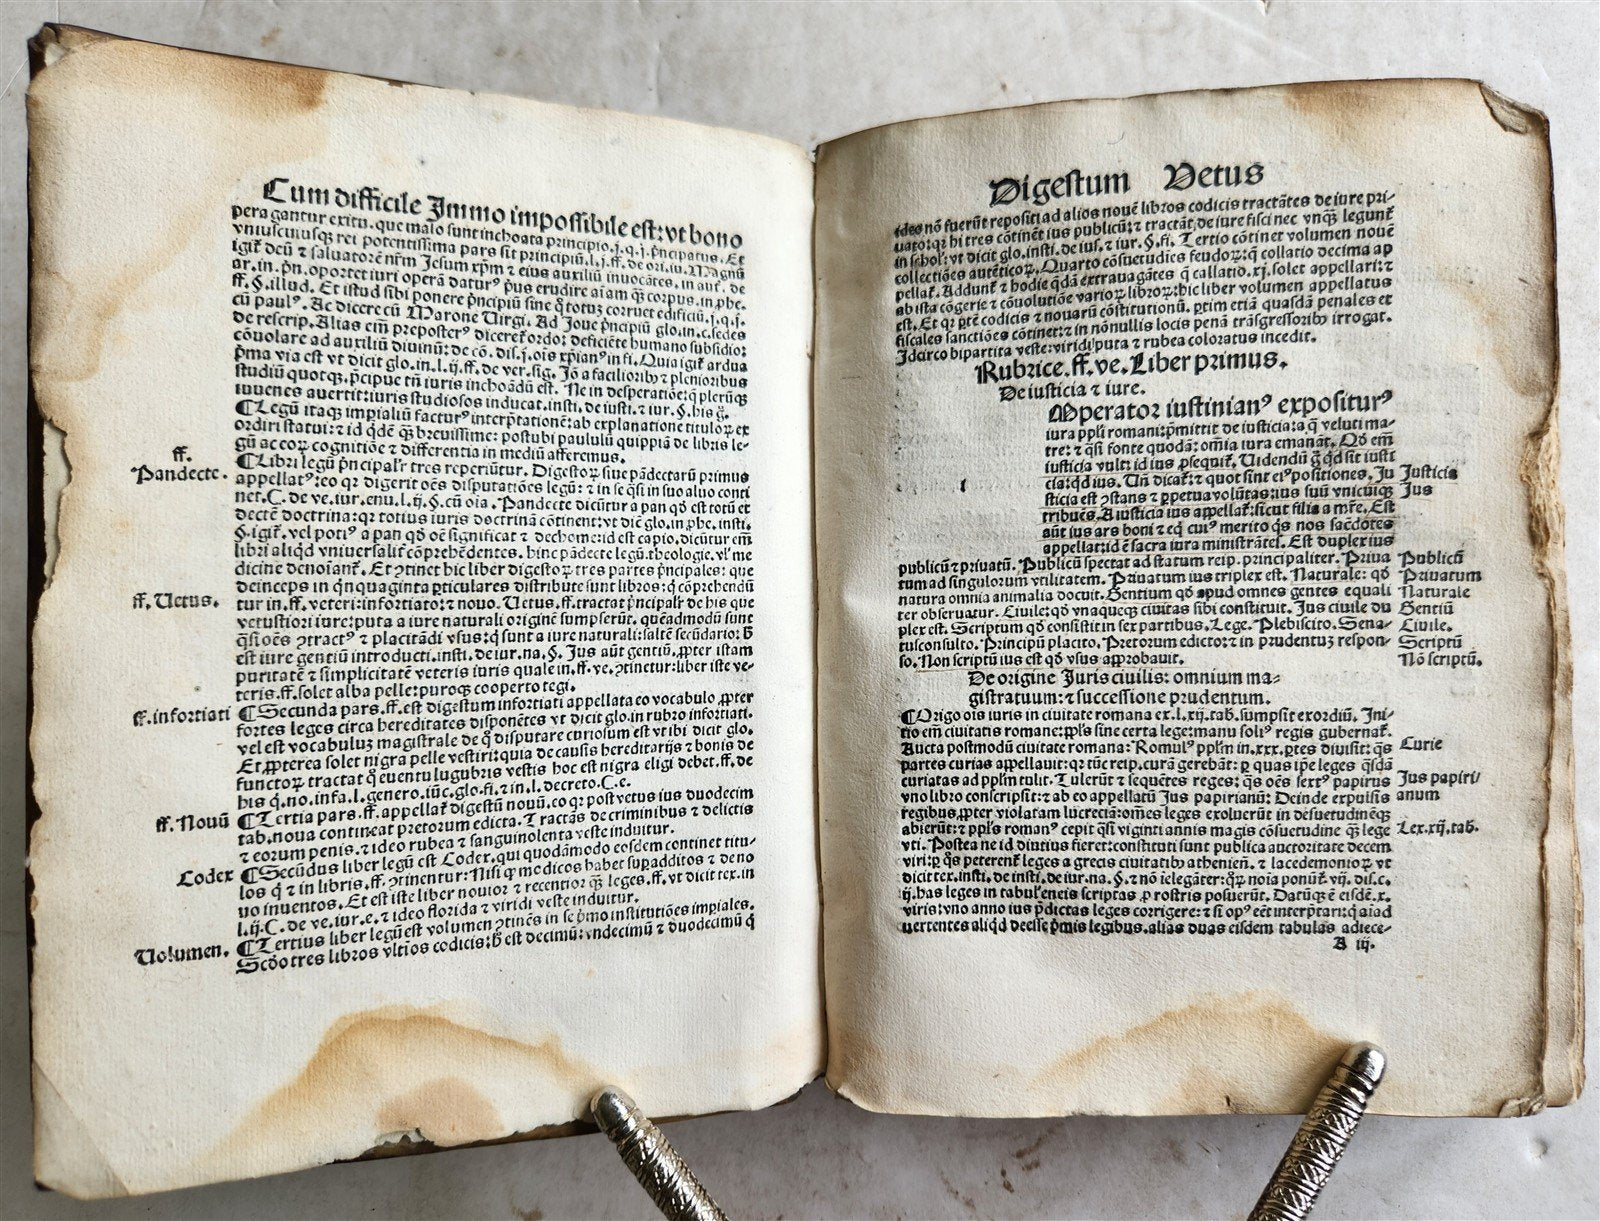 Cum difficile Immo impossibile est: vt bono
pera gantur exitu. que malo sunt inchoata principio. j. q. j. p̄ncipatus. Et
vniuscuiusqȝ rei potentissima pars sit principiū. l. j. ff. de ori. iu. Magnū
igit̄ deū ⁊ saluatorē nr̄m Jesum xp̄m ⁊ eius auxiliū inuocātes. in aut̄. de
ar. in. pn̄. oportet iuri operā daturꝰ p̄us erudire aīam qȝ corpus. in p̄he.
ff. §. illud. Et istud sibi ponere p̄ncipiū sine q̊ totuȝ corruet edificiū. j. q. j.
cū paulꝰ. Ac dicere cū Marone Uirgi. Ad Joue p̄ncipiū glo. in. c. sedes
de rescrip. Alias em̄ preposterꝰ diceret̄ ordo: deficiēte humano subsidio:
cōuolare ad auxiliū diuinū: de cō. dis. j. oīs xp̄ianꝰ in fi. Quia igit̄ ardua
p̄ma via est vt dicit glo. in. l. ij. ff. de ver. sig. Jō a facilioribꝰ ⁊ plenioribus
studiū quotqȝ. p̄cipue tn̄ iuris inchoādū est. Ne in desperatiōe: q̄ plerūqȝ
iuuenes auertit: iuris studiosos inducat. insti. de iusti. ⁊ iur. §. his g̊.
¶ Legū itaqȝ imp̄ialiū facturꝰ interp̄tationē: ab explanatione tituloꝝ ex
ordiri statui: ⁊ id qdē qȝ breuissime: postubi paululū quippiā de libris le-
gū ac eoꝝ cognitiōe ⁊ differentia in mediū afferemus.
ff.
Pandecte.
¶ Libri legū p̄ncipalr̄ tres reperiūtur. Digestoꝝ siue pādectarū primus
appellatꝰ: eo qꝛ digerit oēs disputatiōes legū: ⁊ in se q̄si in suo aluo conti
net. C. de ve. iur. enu. l. ij. §. cū oīa. Pandecte dicūtur a pan qd̄ est totū et
dectēn doctrina: qꝛ totius iuris doctrinā cōtinent: vt dic̄ glo. in p̄he. insti.
§. igit̄. vel potiꝰ a pan qd̄ oē significat ⁊ dechome: id est capio. dicūtur em̄
libri aliqd vniuersalit̄ cōprehēdentes. hinc pādecte legū. theologie. vl̓ me
dicine denoīant̄. Et ꝯtinet hic liber digestoꝝ tres partes p̄ncipales: que
deinceps in qn̄quaginta ꝑticulares distribute sunt libros: q̄ cōprehendū
ff. Uetus.
tur in. ff. veteri: infortiato: ⁊ nouo. Uetus. ff. tractat p̄ncipalr̄ de his que
vetustiori iure: puta a iure naturali originē sumpserūt. quēadmodū sunt
q̄si oēs ꝯtractꝰ ⁊ placitādi vsus: q̄ sunt a iure naturali: saltē secūdario: h̄
est iure gentiū introducti. insti. de iur. na. §. Jus aūt gentiū. ꝓpter istam
puritatē ⁊ simplicitatē veteris iuris quale in. ff. ve. ꝯtinetur: liber iste ve-
teris. ff. solet alba pelle: puroqȝ cooperto tegi.
ff. infortiati
¶ Secunda pars. ff. est digestum infortiati appellata eo vocabulo ꝓpter
fortes leges circa hereditates disponētes vt dicit glo. in rubro infortiati.
vel est vocabuluȝ magistrale de q̊ disputare curiosum est vt ibi dicit glo.
Et ꝓpterea solet nigra pelle vestiri: quia de causis hereditarijs ⁊ bonis de
functoꝝ tractat q̊ euentu lugubris vestis hoc est nigra eligi debet. ff. de
his q̄. no. infa. l. genero. iūc. glo. fi. ⁊ in. l. decreto. C. e.
ff. Nouū
¶ Tertia pars. ff. appellat̄ digestū nouū. eo qꝛ post vetus ius duodecim
tab. noua contineat pretorum edicta. Tractās de criminibus ⁊ delictis
⁊ eorum penis. ⁊ ideo rubea ⁊ sanguinolenta veste induitur.
Codex
¶ Secūdus liber legū est Codex. qui quodāmodo eosdem continet titu-
los q̄ ⁊ in libris. ff. ꝯtinentur: Nisi qꝛ modicos habet supadditos ⁊ de no
uo inuentos. Et est iste liber nouior ⁊ recentior qȝ leges. ff. vt dicit tex. in
l. ij. C. de ve. iur. e. ⁊ ideo florida ⁊ viridi veste induitur.
Uolumen.
¶ Tertius liber legū est volumen ꝯtinēs in se p̄mo institutiōes imp̄iales.
Scd̄o tres libros vltīos codicis: h̄ est decimū: vndecimū ⁊ duodecimū q̄
Digestum Vetus
ides nō fuerūt repositi ad alios nouē libros codicis tractātes de iure pri-
uato: qꝛ hi tres cōtinēt ius publicū: ⁊ tractāt de iure fisci nec vnqȝ legunt̄
in schol̓: vt dicit glo. insti. de ius. ⁊ iur. §. fi. Tertio cōtinet volumen nouē
collectiōes autēticoꝝ. Quarto cōsuetudines feudoꝝ: q̄ collatio decima ap
pellat̄. Addunt̄ ⁊ hodie q̄dā extrauagātes q̄ callatio. xj. solet appellari: ⁊
ab ista cōgerie ⁊ cōuolutiōe varioꝝ libroꝝ: hic liber volumen appellatus
est. Et qꝛ ꝑtē codicis ⁊ nouarū cōstitutionū. ꝑtim etiā quasdā penales et
fiscales sanctiōes cōtinet: ⁊ in nōnullis locis penā trāsgressoribꝰ irrogat.
Jdcirco bipartita veste: viridi puta ⁊ rubea coloratus incedit.
Rubrice. ff. ve. Liber primus.
De iusticia ⁊ iure.
Mperator iustinianꝰ expositurꝰ
iura pp̄li romani: p̄mittit de iusticia: a q̄ veluti ma-
tre: ⁊ q̄si fonte quodā: omīa iura emanāt. Qd̄ em̄
iusticia vult: id ius ꝓsequit̄. Uidendū g̊ qd sit iusti
cia: qd ius. Un̄ dicat̄: ⁊ quot sint eiꝰ positiones. Ju
sticia est ꝯstans ⁊ ꝑpetua volūtas: ius suū vnicuiqȝ
tribuēs. A iusticia ius appellat̄: sicut filia a mr̄e. Est
aūt ius ars boni ⁊ eq̄ cuiꝰ merito q̄s nos sacdōtes
appellat: id ē sacra iura ministrātes. Est duplex ius
publicū ⁊ priuatū. Publicū spectat ad statum reip. principaliter. Priua
tum ad singulorum vtilitatem. Priuatum ius triplex est. Naturale: qd̄
natura omnia animalia docuit. Gentium qd̄ apud omnes gentes equali
ter obseruatur. Ciuile: qd̄ vnaqueqȝ ciuitas sibi constituit. Jus ciuile du
plex est. Scriptum qd̄ consistit in sex partibus. Lege. Plebiscito. Sena-
tusconsulto. Principū placito. Pretorum edicto: ⁊ in prudentuȝ respon-
so. Non scriptū ius est qd̄ vsus approbauit.
Justicia
Jus
Publicū
Priuatum
Naturale
Gentiū
Ciuile.
Scriptū
Nō scriptū.
De origine Juris ciuilis: omnium ma-
gistratuum: ⁊ successione prudentum.
¶ Origo oīs iuris in ciuitate romana ex. l. xij. tab. sumpsit exordiū. Jni-
tio em̄ ciuitatis romane: pp̄ls sine certa lege: manu soliꝰ regis gubernat̄.
Aucta postmodū ciuitate romana: Romulꝰ pp̄lm in. xxx. ꝑtes diuisit: q̄s
partes curias appellauit: qꝛ tūc reip. curā gerebāt: ꝑ quas ip̄e leges q̄sdā
curiatas ad pp̄lm tulit. Tulerūt ⁊ sequētes reges: q̄s oēs sextꝰ papirus
vno libro conscripsit: ⁊ ab eo appellatū Jus papirianū: Deinde expulsis
regibus, ꝓpter violatam lucreciā: om̄es leges exoluerūt in dēsuetudinēqȝ
abierūt: ⁊ pp̄ls romanꝰ cepit q̄si viginti annis magis cōsuetudine qȝ lege
vti. Postea ne id diutius fieret: constituti sunt publica auctoritate decem
viri: ꝑ q̄s peterent̄ leges a grecis ciuitatibꝰ athenien̄. ⁊ lacedemonioꝝ vt
dicit tex. insti. de insti. de iur. na. §. ⁊ nō ielegāter: q̊ꝝ noīa ponūt̄. vij. dis. c.
ij. has leges in tabul̓ eneis scriptas ꝓ rostris posuerūt. Datūqȝ ē eisdē. x.
viris: vno anno ius p̄dictas leges corrigere: ⁊ si opꝰ eēt interp̄tari: q̄ aiad
uertentes aliqd deesse p̄mis legibus. alias duas eisdem tabulas adiece-
Curie
Jus papiri/
anum
Lex. xij. tab.
A iij.